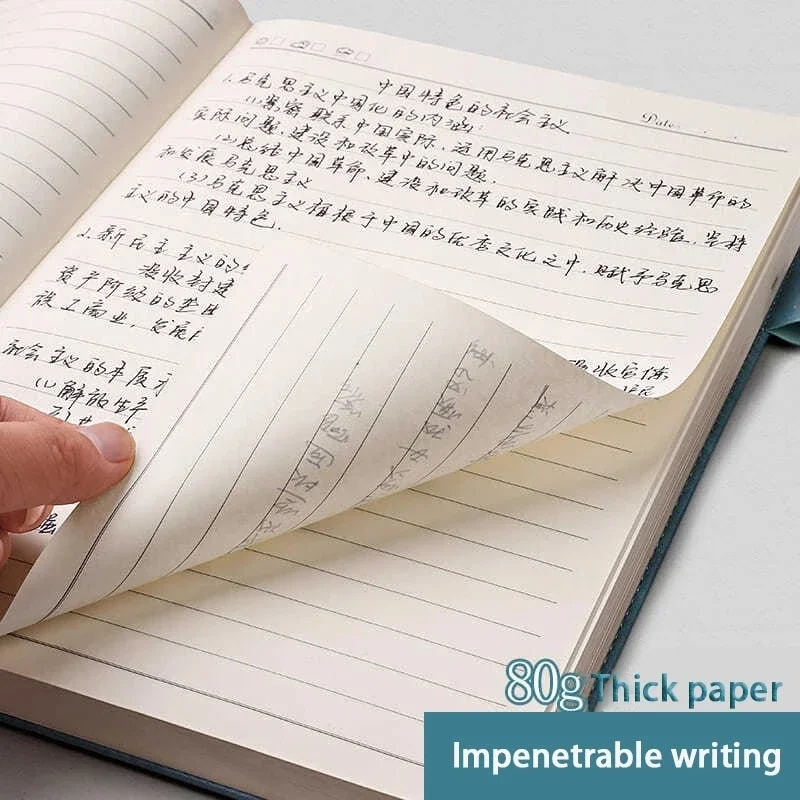 Date: . .
中国特色的社会主义
1.马克思主义中国化的内涵:
(1)紧密联系中国实际、运用马克思主义解决中国革命的
实际问题,建设和改革中的问题
(2)总结中国革命、建设和改革的实践和历史经验,坚持
和发展马克思主义
(3)马克思主义植根于中国的优秀文化之中,赋予马克思
主义的中国特色.
2.新民主主义的
没收封建
资产阶级的垄
族工商业,发展
社会主义的本质
(1)解放生产
80g Thick paper
Impenetrable writing